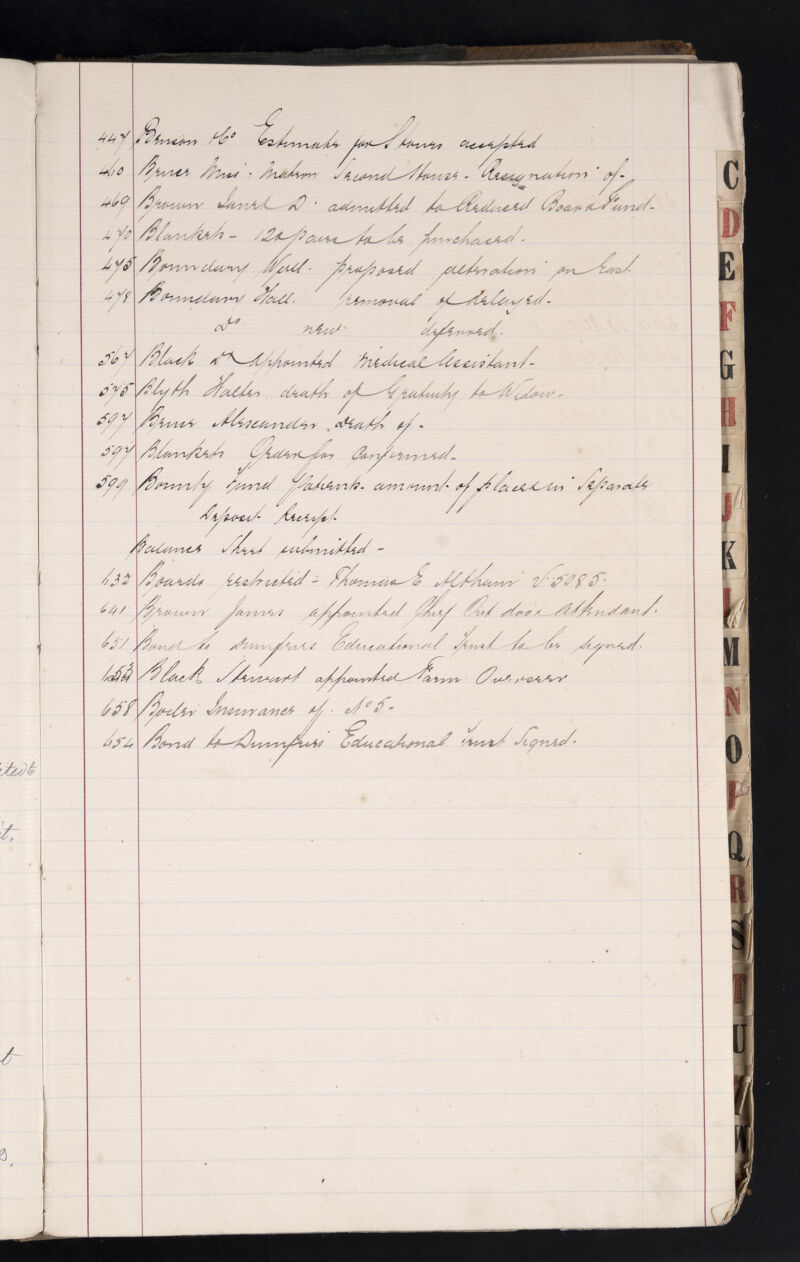 447 Benson & Co Estimate for Stoves accepted
460 Bruce Miss - Matron Second House - Resignation of -
469 Brown Janet D. admitted to Reduced Board Fund -
470 Blankets - 120 pairs to be purchased -
475 Boundary Wall. proposed alteration on East
478 Boundary Wall. removal of delayed -
Do new deferred.
567 Black Dr Appointed Medical Assistant -
575 Blyth Walter death of Gratuity to Widow -
597 Bruce Alexander Death of -
597 Blankets Order for Confirmed -
599 Bounty Fund Patients - amount of placed in Separate
Deposit Receipt
Balance Sheet submitted -
632 Boards restricted - Thomas E 5085 -
641 Brown James appointed Chief Out door Attendant.
651 Bond to Dumfries Educational Trust to be signed.
Black Stewart appointed Farm Overseer
658 Boiler Insurance of. No 5 -
654 Bond to Dumfries Educational Trust Signed -
C
D
E
F
G
H
I
J
K
L
M
N
O
P
Q
R
S
T
U
V
W